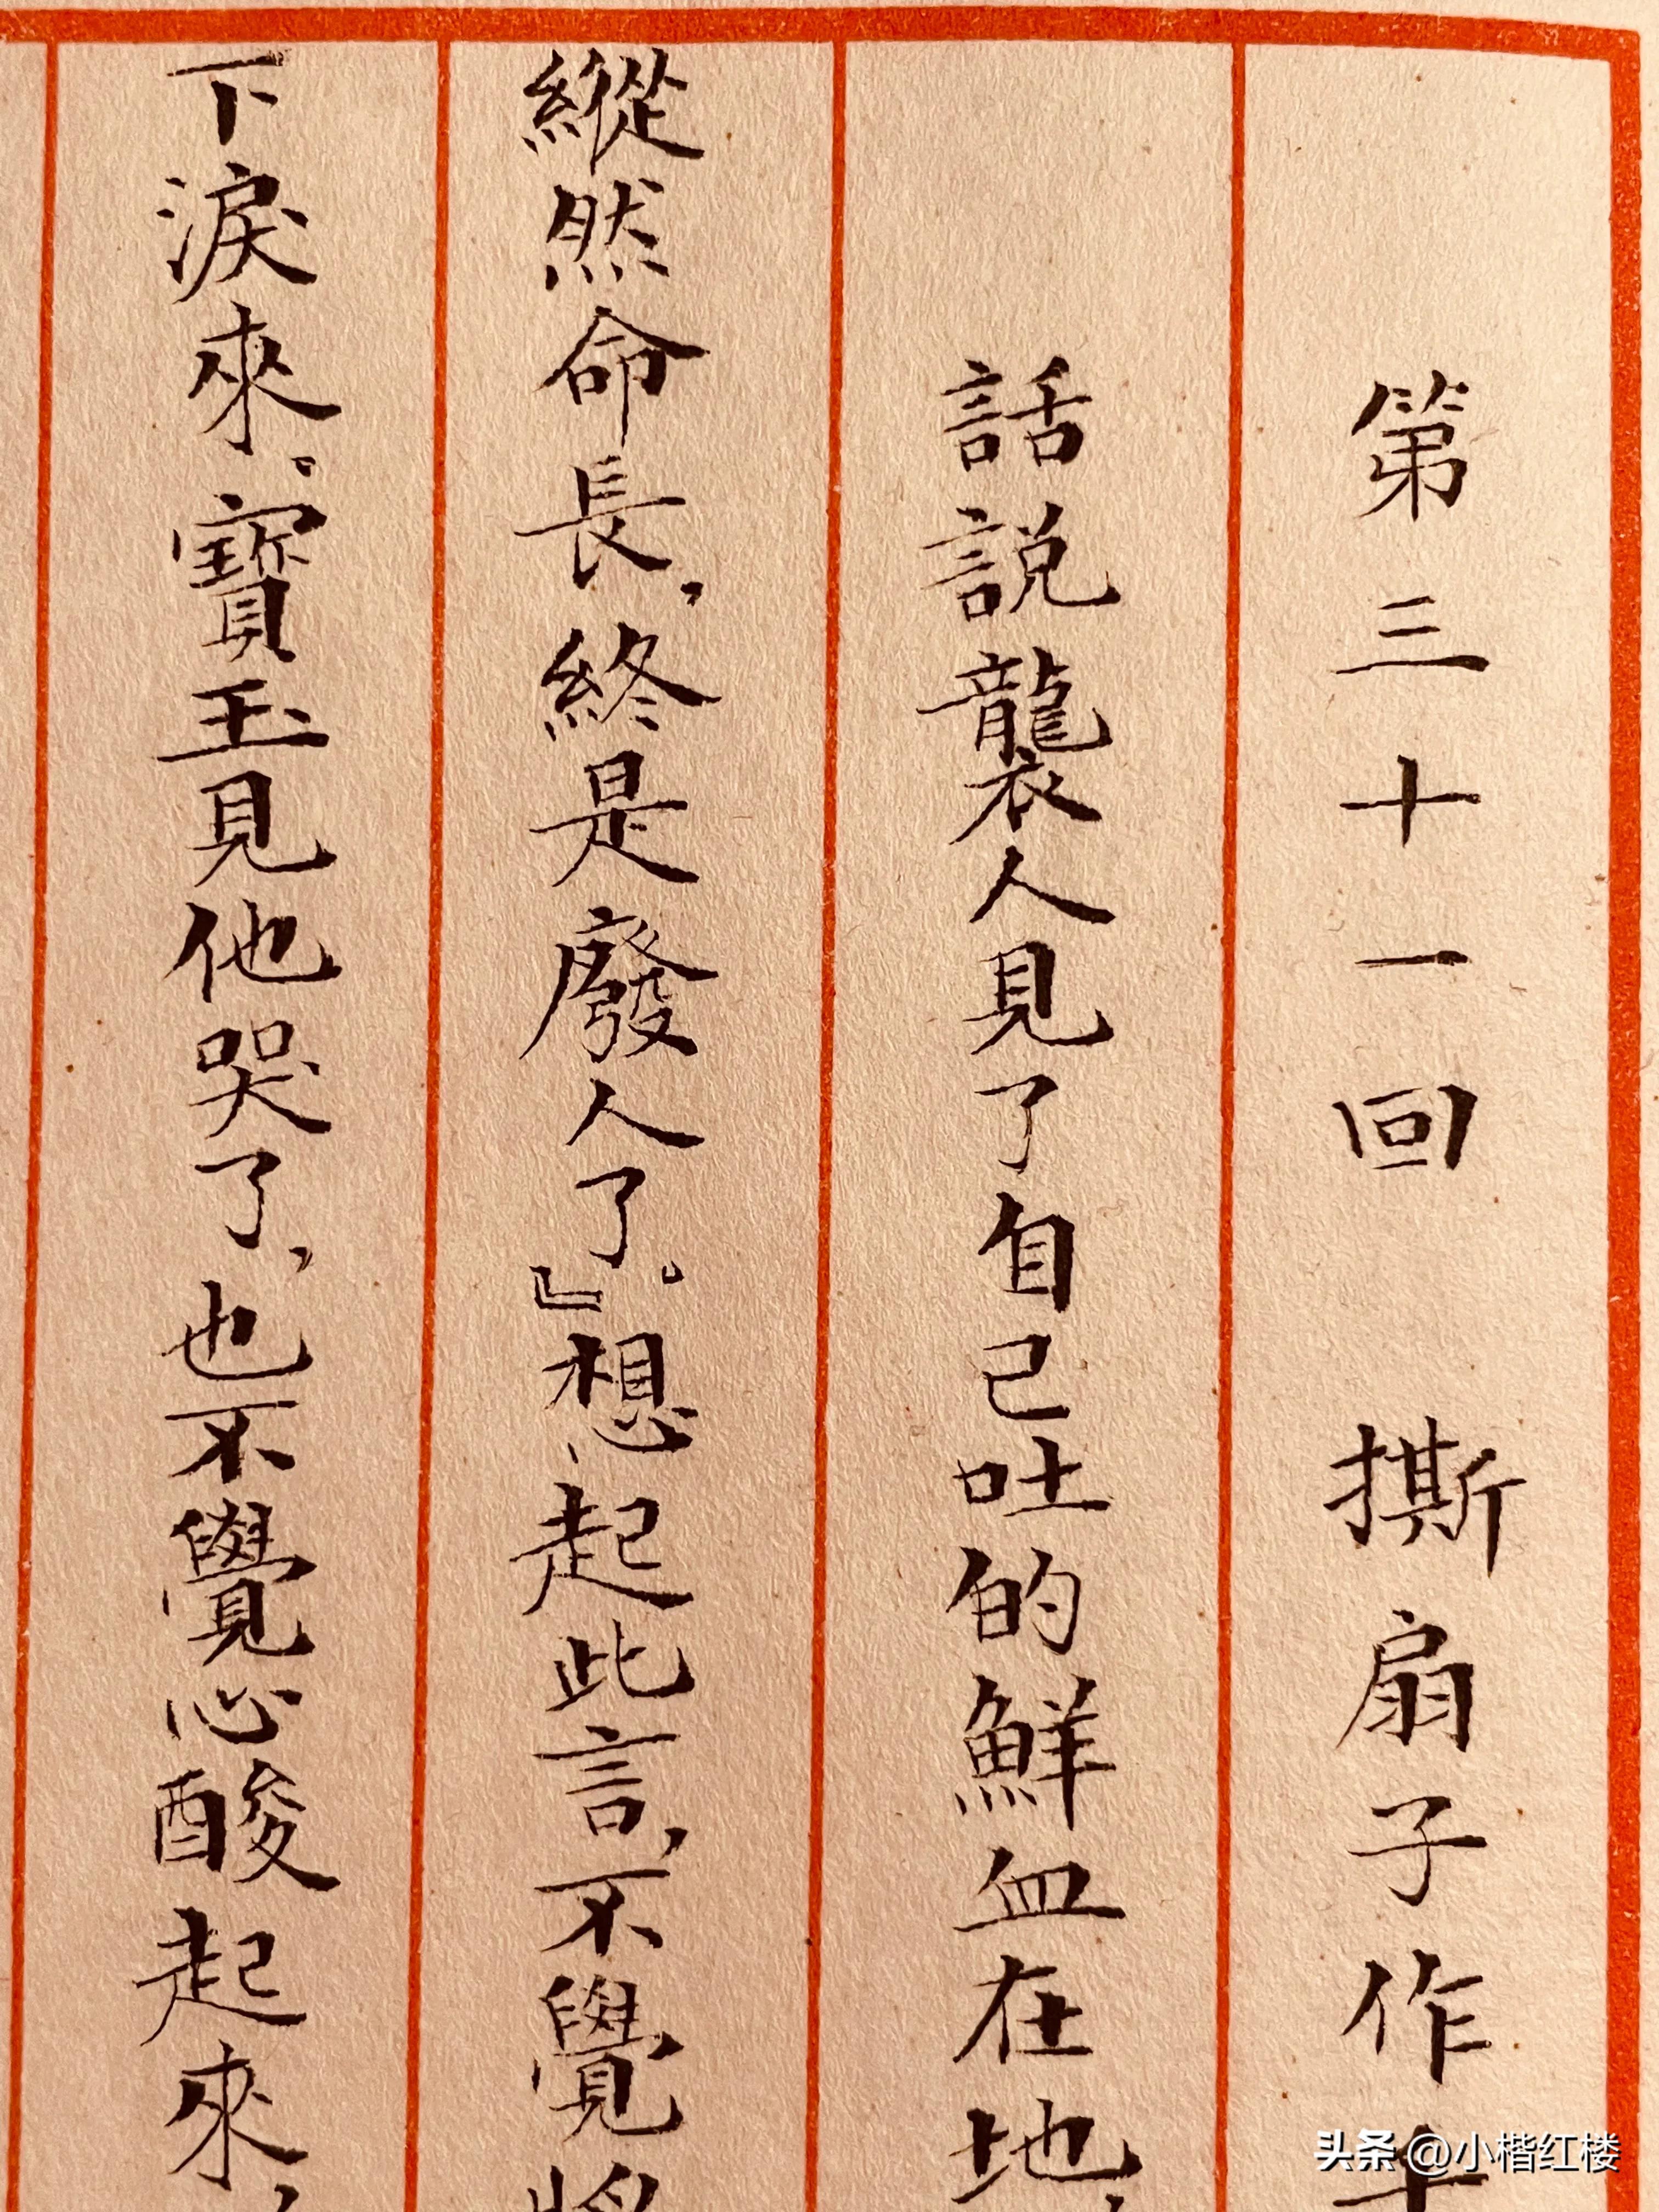 第三十一回　撕扇子作千
話說襲人見了自己吐的鮮血在地，
縱然命長，終是廢人了。』想起此言，不覺將
下淚來。寶玉見他哭了，也不覺心酸起來，
头条 @小楷红楼